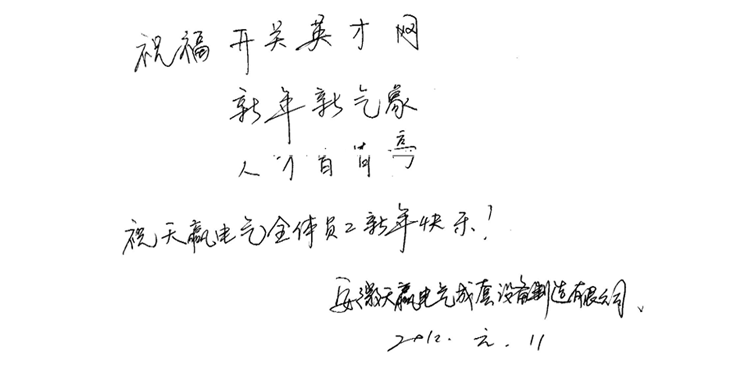 祝福开关英才网
新年新气象
人才百
祝天赢电气全体员工新年快乐！
安徽天赢电气成套设备制造有限公司、
2012.元.11